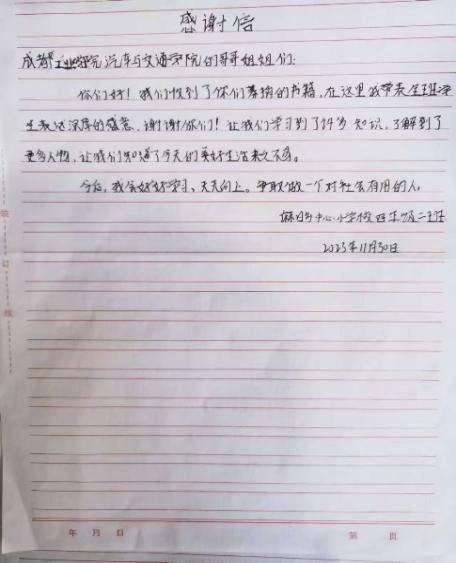 感谢信
成都工业学院汽车与交通学院的哥哥姐姐们:
你们好!我们收到了你们募捐的书籍,在这里我带表全班学
生表达深厚的感意、谢谢你们!让我们学习到了许多知识,了解到了
更多人物,让我们知道了今天的美好生活来之不易。
今后,我会好好学习、天天向上。争取做一个对社会有用的人。
中心小学校四年级二班
2023年11月30日
装
订
线
年 月 日
第 页